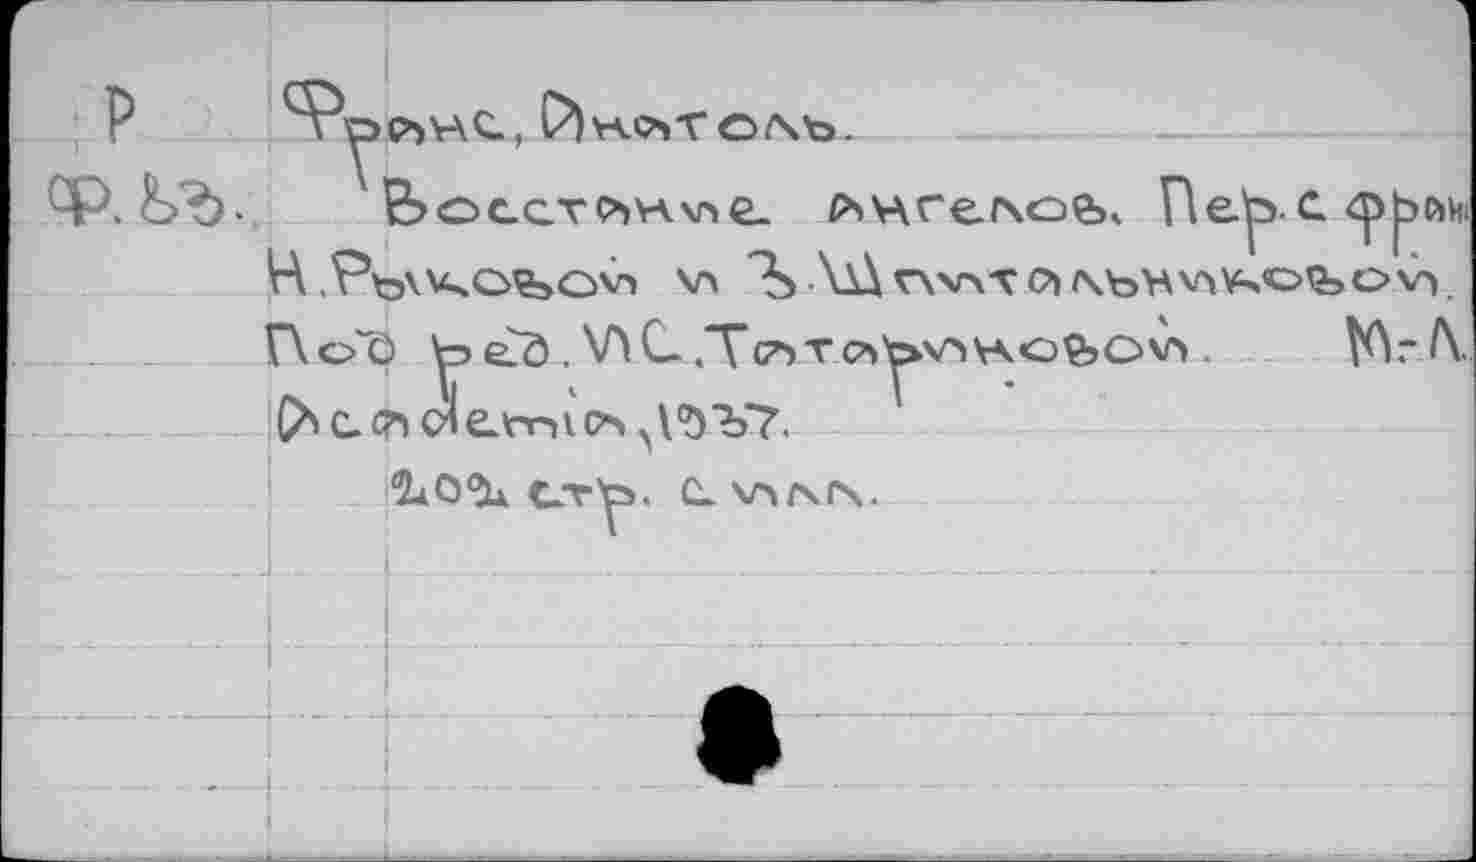 Р Франс, Анатоль.
Ф.83. Восстание ангелов. Пер. с фран
Н.Рыковой и З.Шпитальниковой.
Под ред.И.С.Татариновой. М.-Л.
Academia, 1937.
202 стр. с илл.